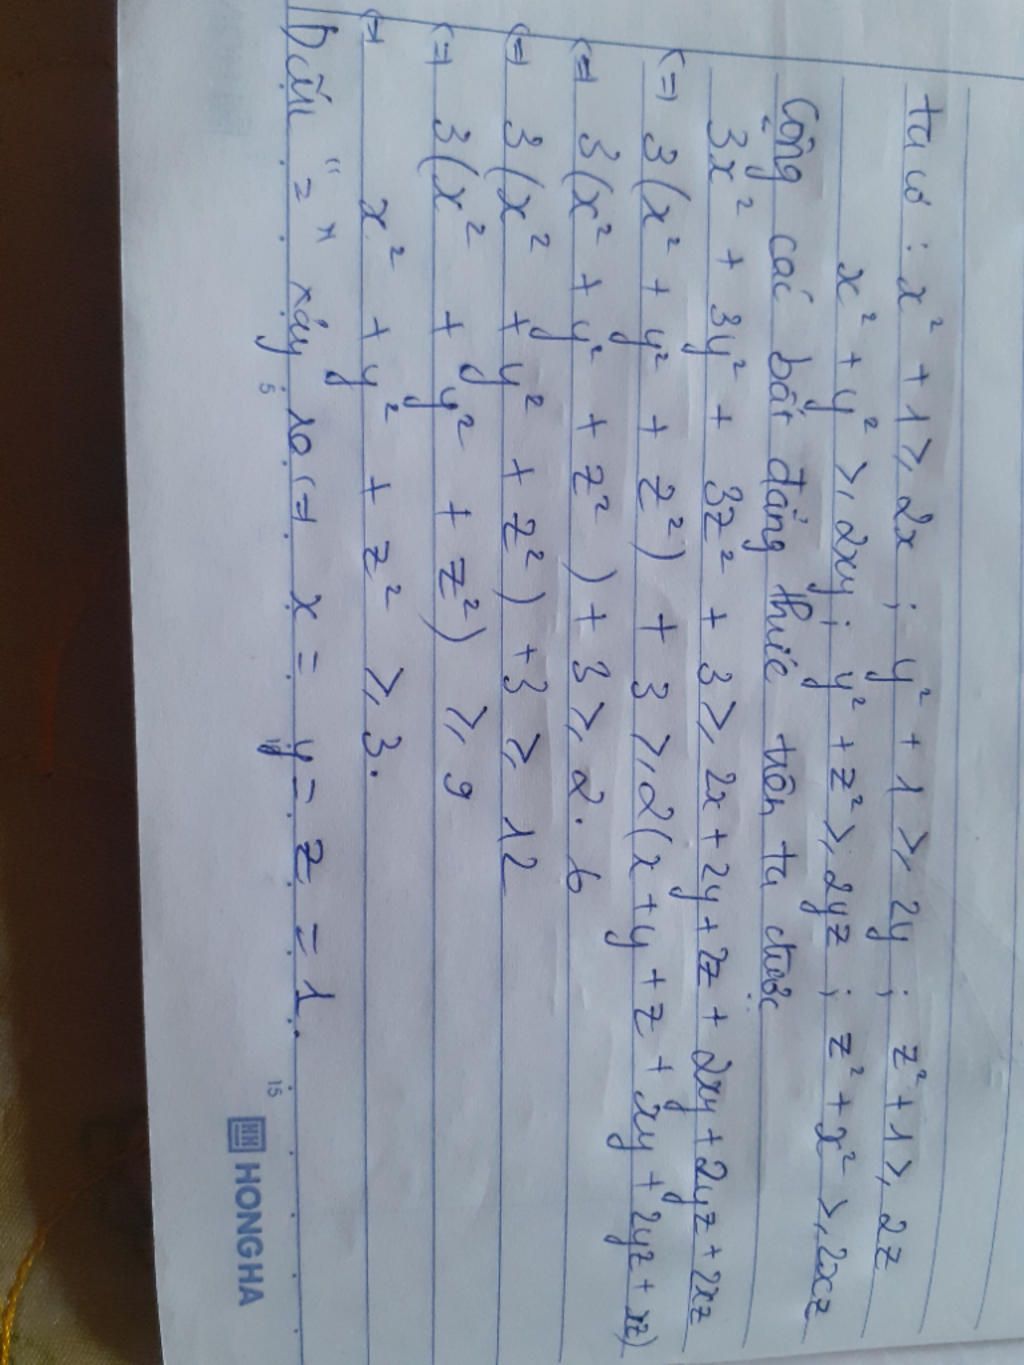 ta có : x² + 1 ≥ 2x ; y² + 1 ≥ 2y ; z² + 1 ≥ 2z
x² + y² ≥ 2xy ; y² + z² ≥ 2yz ; z² + x² ≥ 2xz
Cộng các bất đẳng thức trên ta được
3x² + 3y² + 3z² + 3 ≥ 2x + 2y + 2z + 2xy + 2yz + 2xz
(=) 3(x² + y² + z²) + 3 ≥ 2(x + y + z + xy + 2yz + xz)
(=) 3(x² + y² + z²) + 3 ≥ 2. 6
(=) 3(x² + y² + z²) + 3 ≥ 12
(=) 3(x² + y² + z²) ≥ 9
(=) x² + y² + z² ≥ 3.
Dấu "=" xảy ra (=) x = y = z = 1.
5 10 15
HONG HA